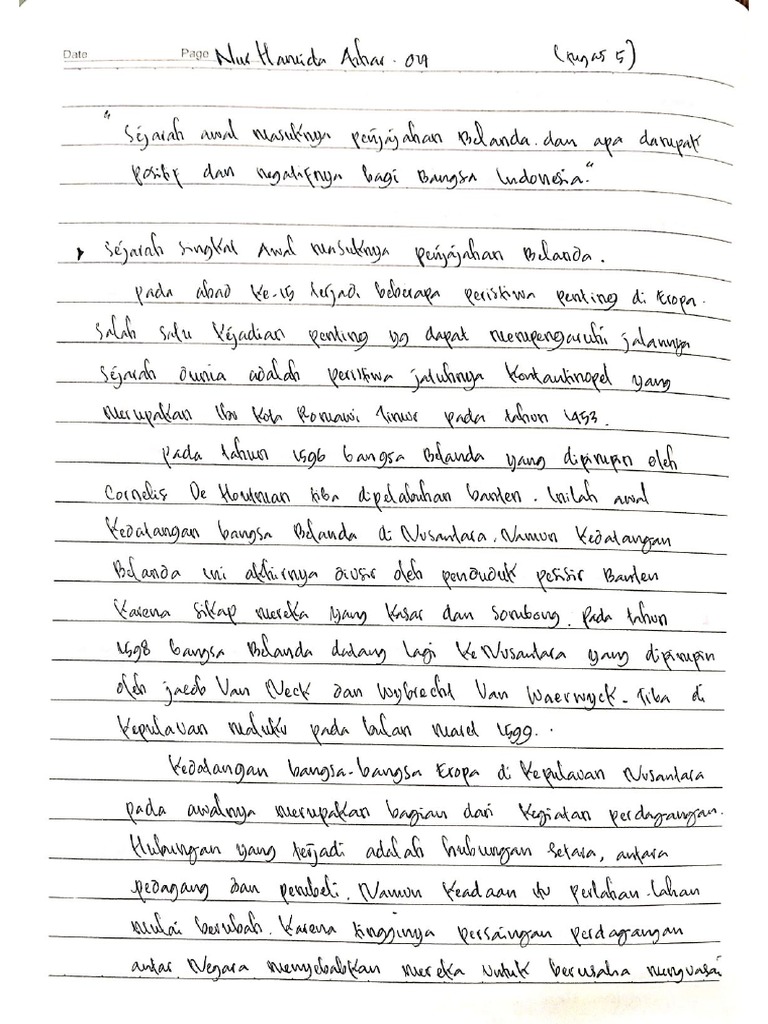 Date Page Nur Hamida Azhar . 04 (tugas 5)
" Sejarah awal masuknya penjajahan Belanda. dan apa dampak
positif dan negatifnya bagi Bangsa Indonesia."
Sejarah singkat Awal masuknya penjajahan Belanda.
pada abad Ke-15 terjadi beberapa peristiwa penting di Eropa.
Salah satu Kejadian penting yg dapat mempengaruhi jalannya
sejarah dunia adalah peristiwa jatuhnya Kontantinopel yang
merupakan Ibu Kota Romawi Timur pada tahun 1453.
pada tahun 1596 bangsa Belanda yang dipimpin oleh
Cornelis De Houtman tiba dipelabuhan banten. Inilah awal
Kedatangan bangsa Belanda di Nusantara. Namun Kedatangan
Belanda ini akhirnya diusir oleh penduduk pesisir Banten
Karena sikap mereka yang Kasar dan sombong. Pada tahun
1598 bangsa Belanda datang lagi Ke Nusantara yang dipimpin
oleh jacob Van Neck dan Wybrecht Van Waerwyck. Tiba di
Kepulauan maluku pada bulan maret 1599.
Kedatangan bangsa-bangsa Eropa di Kepulauan Nusantara
pada awalnya merupakan bagian dari Kegiatan perdagangan.
Hubungan yang terjadi adalah hubungan setara, antara
pedagang dan pembeli. Namun Keadaan itu perlahan-lahan
mulai berubah. Karena tingginya persaingan perdagangan
antar Negara menyebabkan mereka untuk berusaha menguasai